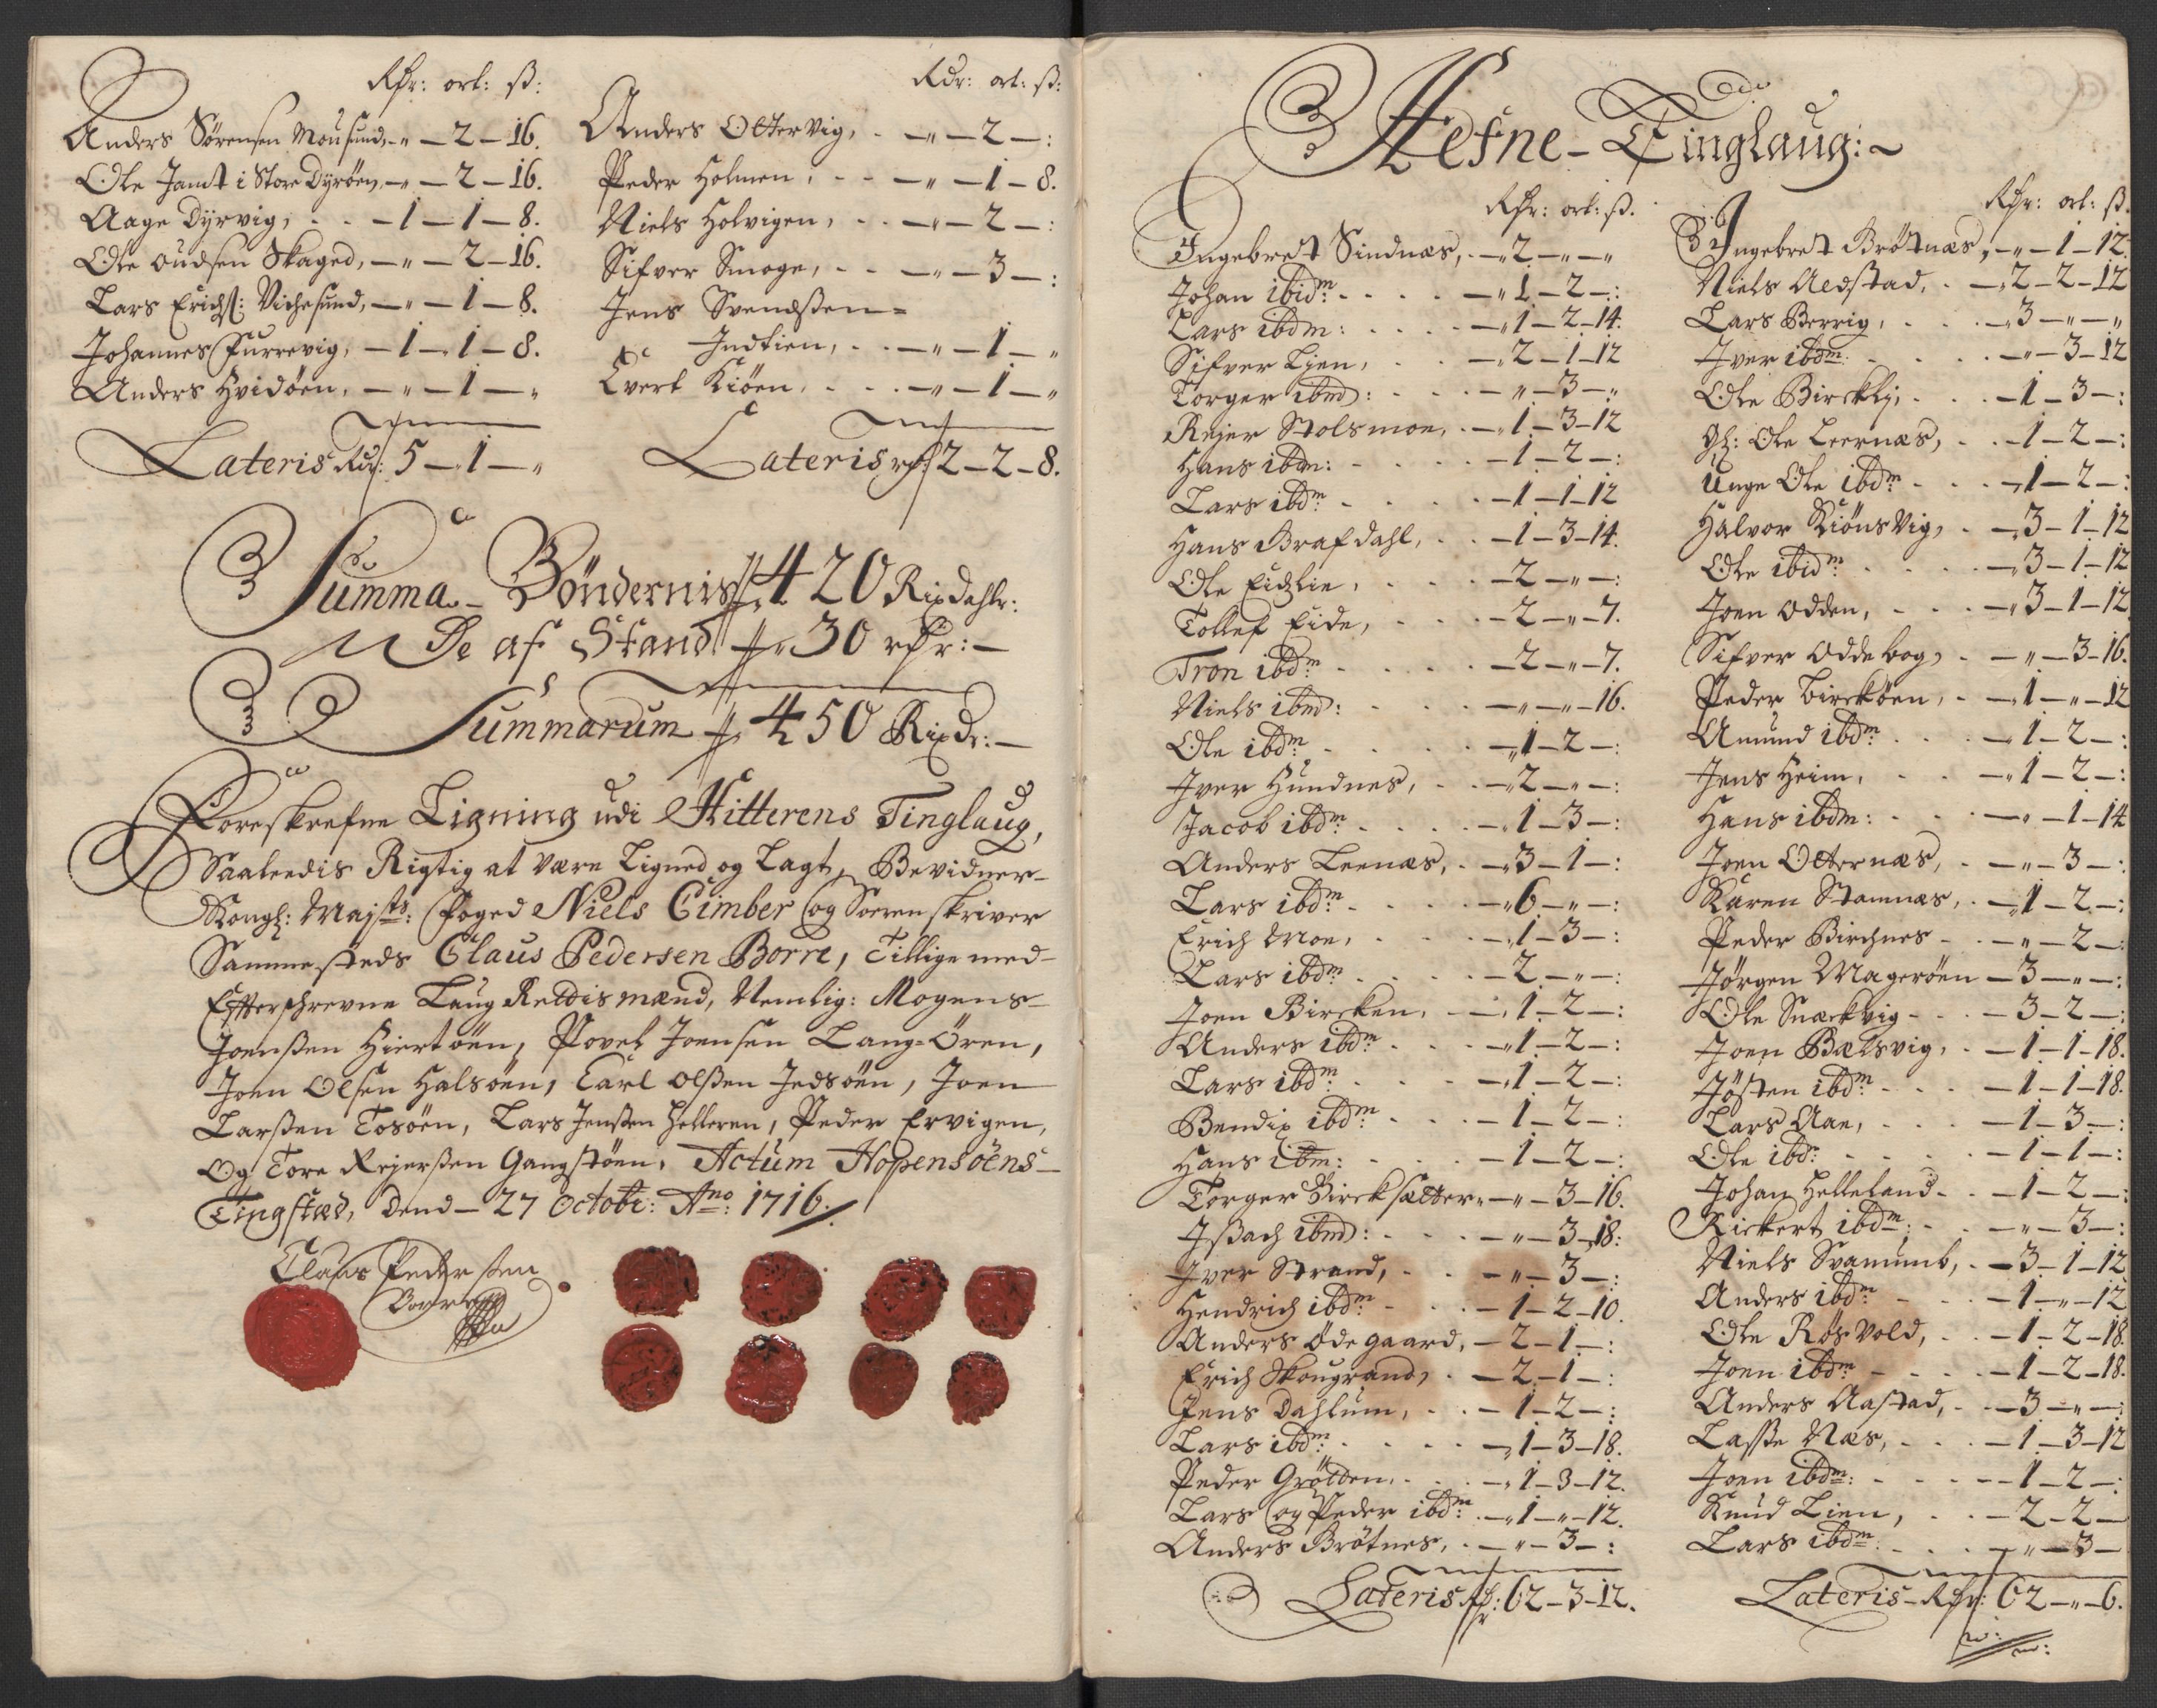 Rdr: ort: ß:
Anders Sørensen Mousund, - " - 2 - 16.
Ole Jamt i Store Dyrøen, - " - 2 - 16.
Aage Dyrvig, - 1 - 1 - 8.
Ole oudsen Skaged, - " - 2 - 16.
Lars Erichs: Vichesund, - " - 1 - 8.
Johannes Furrevig, - 1 - 1 - 8.
Anders Hvidøen, - " - 1 - "
Lateris Rdr: 5 - 1 - "
Rdr: ort: ß:
Anders Ottervig, - " - 2 - :
Peder Holmen, - " - 1 - 8.
Niels Holvigen, - " - 2 - :
Sifver Smoge, - " - 3 - :
Jens Svendsen=
Indtien, - " - 1 - "
Evert Kiøen, - " - 1 - "
Lateris rdr 2 - 2 - 8.
Summa - Bøndernis 420 Rixdahlr:
De af Stand 30 rdr: -
Summarum 450 Rixdr: -
Foreskrefne Ligning udi Hitterens Tinglaug,
Saaleedis Rigtig at være Ligned og Lagt, Bevidner -
Kongl: Majsts: Foged Niels Cimber og Sorenskriver
Sammesteds Claus Pedersen Borre, Tillige med -
Effterschrevne Laug Rettismænd, Nemlig: Mogens -
Joenßen Hiertøen, Povel Joensen Lang=Ören,
Joen Olsen Halsøen, Carl olßen Jedsøen, Joen
Larßen Tosöen, Lars Jenßen Helleren, Peder Ervigen,
Og Tore Rejerßen Gangstöen, Actum Hopensöens -
Tingstæd, Dend - 27 Octobr: Ano: 1716:
Claus Pedersen
Borre
Hefne - Tinglaug: ~
Rdr: ort: ß.
Ingebret Sindnæs, - 2 - " - "
Johan ibidm - " 1 - 2 - :
Lars ibdm: - " 1 - 2 - 14.
Sifver Lien, - " 2 - 1 - 12
Torger ibmd: - " - 3 - "
Rejer Stolsmoe, - " 1 - 3 - 12
Hans ibdm: - 1 - 2 - :
Lars ibdm - 1 - 1 - 12
Hans Grafdahl, - 1 - 3 - 14.
Ole Eidzlie, - 2 - " - :
Tollef Eide, - 2 - " - 7.
Tron ibdm - 2 - " - 7.
Niels ibmd: - " - " - 16.
Ole ibdm - " 1 - 2 - :
Iver Hundnes, - " 2 - " - :
Jacob ibdm - " 1 - 3 - :
Anders Leenæs, - " 3 - 1 - :
Lars ibdm - " 6 - " - :
Erich Moe, - 1 - 3 - :
Lars ibdm - 2 - " - :
Joen Bircken, - 1 - 2 - :
Anders ibdm - " 1 - 2 - :
Lars ibdm - " 1 - 2 - :
Bendix ibdm - 1 - 2 - :
Hans ibm: - 1 - 2 - :
Torger Bircksætter, - " - 3 - 16.
Jßach ibmd: - " - 3 - 18:
Iver Strand, - " - 3 - :
Hendrich ibdm - 1 - 2 - 10.
Anders Ödegaard, - 2 - 1 - :
Erich Skougrand, - 2 - 1 - :
Jens Dahlum, - 1 - 2 - :
Lars ibdm - 1 - 3 - 18.
Peder Grötten, - " 1 - 3 - 12.
Lars og Peder ibdm - " 1 - " - 12.
Anders Brötnes, - " - 3 - :
Lateris Rdr: 62 - 3 - 12.
Rdr: ort: ß.
Ingebret Brötnæs, - " - 1 - 12.
Niels Aedstad, - " 2 - 2 - 12
Lars Berrig, - 3 - " - "
Iver ibdm - " - 3 - 12
Ole Birckly, - 1 - 3 - :
Gl: Ole Leernæs, - 1 - 2 - :
Unge Ole ibdm - 1 - 2 - :
Halvor Kiönsvig, - 3 - 1 - 12
Ole ibidm - " 3 - 1 - 12
Joen Odden, - " 3 - 1 - 12
Sifver Oddebog, - " - 3 - 16.
Peder Birckøen, - " 1 - " - 12
Amund ibdm - 1 - 2 - :
Jens Heim, - " 1 - 2 - :
Hans ibdm: - " - 1 - 14
Joen Otternæs, - " - 3 - :
Karen Stamnæs, - " 1 - 2 - :
Peder Birchnes - " - 2 - :
Jørgen Magerøen - 3 - " - :
Ole Snæckvig - 3 - 2 - :
Joen Bælsvig, - 1 - 1 - 18.
Jösten ibdm - 1 - 1 - 18.
Lars Aae, - 1 - 3 - :
Ole ibd: - 1 - 1 - :
Johan Helleland - 1 - 2 - :
Rickert ibdm: - " - 3 - :
Niels Svanumb, - 3 - 1 - 12
Anders ibdm - 1 - " - 12
Ole Røsvold, - 1 - 2 - 18.
Joen ibdm - 1 - 2 - 18.
Anders Aastad, - 3 - " - :
Lasse Næs, - 1 - 3 - 12
Joen ibdm: - 1 - 2 - :
Knud Lien, - 2 - 2 -
Lars ibdm: - " - 3 -
Lateris - Rdr: 62 - " - 6.